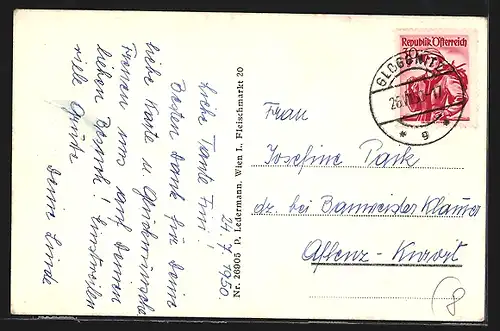 24.7.1950.
Liebe Tante Fini!
Besten Dank für Deine
liebe Karte u. Glückwünsche
Freuen uns auf Deinen
lieben Besuch! Einstweilen
viele Grüße
Deine Linde
Nr. 26005 P. Ledermann, Wien I., Fleischmarkt 20
Republik Österreich
GLOGGNITZ
g
Frau
Josefine Park
bei Baumeister Klauser
Aflenz - Kurort
8